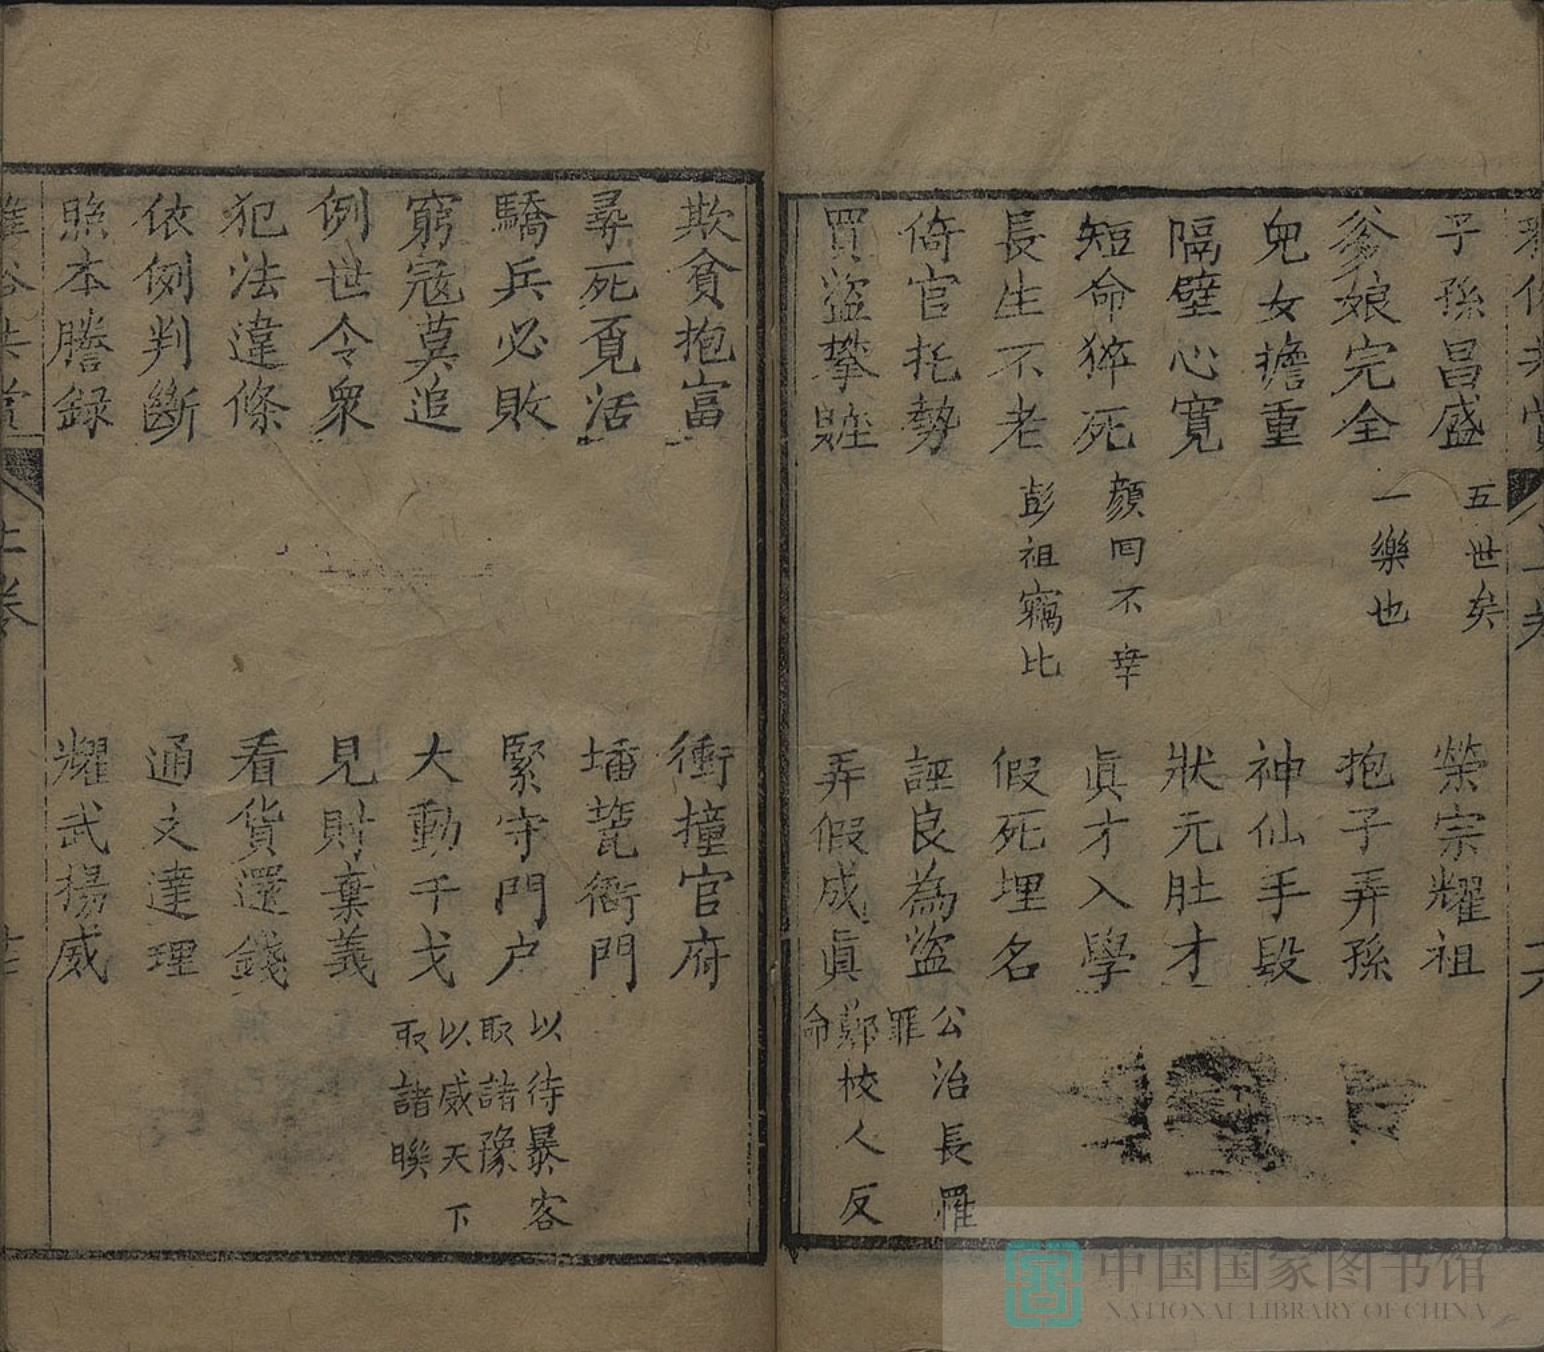 雅俗共賞
上卷
子孫昌盛 五世矣 榮宗耀祖
爹娘完全 一樂也 抱子弄孫
兒女擔重 神仙手段
隔壁心寬 狀元肚才
短命猝死 顔回不幸 眞才入學
長生不老 彭祖竊比 假死埋名
倚官托勢 誣良為盜 公冶長罹罪
買盜攀賍 弄假成眞 鄭校人反命
欺貧抱富 衝撞官府
尋死覓活 墦甏衙門
驕兵必敗 緊守門户 以待暴客取諸豫
窮寇莫追 大動干戈 以威天下取諸睽
例世令衆 見財棄義
犯法違條 看貨還錢
依例判斷 通文達理
照本謄録 耀武揚威
雅俗共賞
上卷
中国国家图书馆
NATIONAL LIBRARY OF CHINA